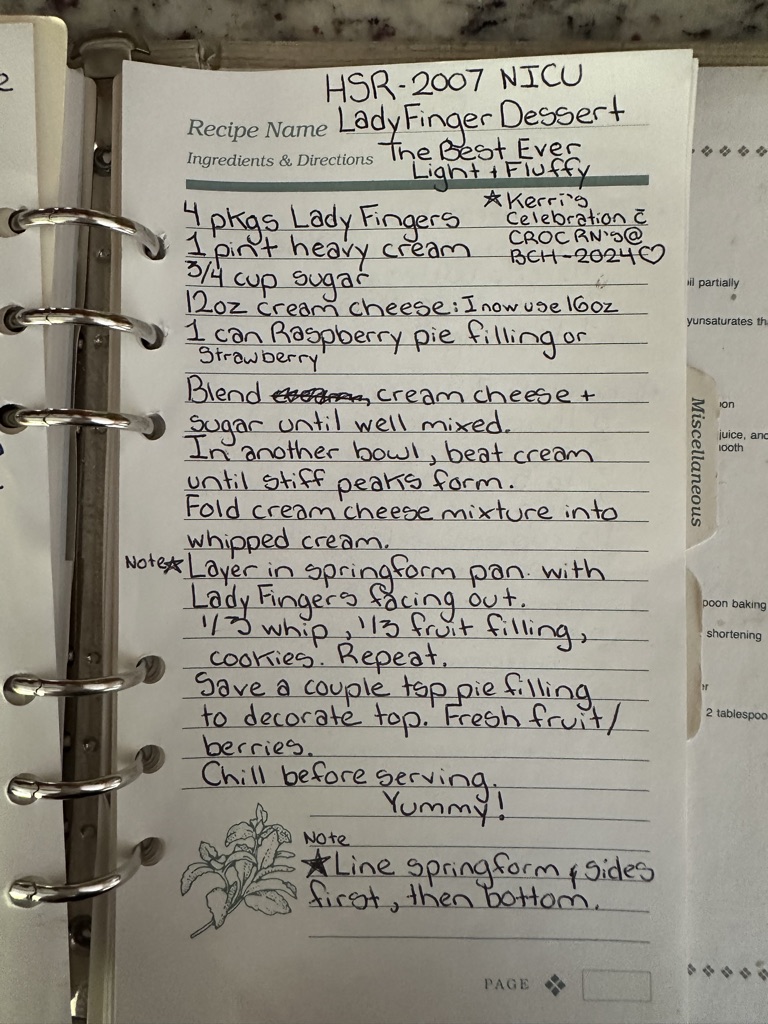 HSR-2007 NICU
Recipe Name LadyFinger Dessert
Ingredients & Directions The Best Ever
Light + Fluffy
★Kerri's
4 pkgs Lady Fingers Celebration c̄
1 pint heavy cream CROC RN's@
BCH-2024♡
3/4 cup sugar
12oz cream cheese: I now use 16oz
1 can Raspberry pie filling or
Strawberry
Blend cream cheese +
sugar until well mixed.
In another bowl, beat cream
until stiff peaks form.
Fold cream cheese mixture into
whipped cream.
Note★Layer in springform pan. with
Lady Fingers facing out.
1/3 whip, 1/3 fruit filling,
cookies. Repeat.
Save a couple tsp pie filling
to decorate top. Fresh fruit/
berries.
Chill before serving.
Yummy!
Note
★Line springform & sides
first, then bottom.
PAGE
Miscellaneous
oil partially
yunsaturates
juice, and
poon baking
shortening
2